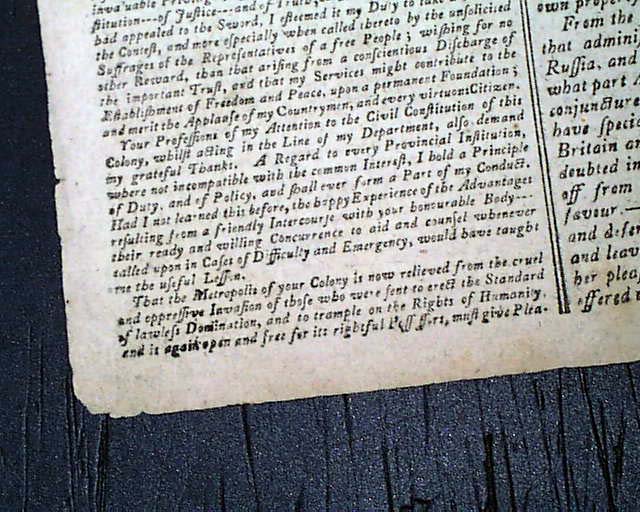 invaluable Privileg
stitution---of Justice---and of Truth,
had appealed to the Sword, I esteemed it my Duty to take
the Contest, and more especially when called thereto by the unsolicited
Suffrages of the Representatives of a free People; wishing for no
other Reward, than that arising from a conscientious Discharge of
the important Trust, and that my Services might contribute to the
Establishment of Freedom and Peace, upon a permanent Foundation;
and merit the Applause of my Countrymen, and every virtuous Citizen.
Your Professions of my Attention to the Civil Constitution of this
Colony, whilst acting in the Line of my Department, also demand
my grateful Thanks. A Regard to every Provincial Institution,
where not incompatible with the common Interest, I hold a Principle
of Duty, and of Policy, and shall ever form a Part of my Conduct.
Had I not learned this before, the happy Experience of the Advantages
resulting from a friendly Intercourse with your honourable Body---
their ready and willing Concurrence to aid and counsel whenever
called upon in Cases of Difficulty and Emergency, would have taught
me the useful Lesson.
That the Metropolis of your Colony is now relieved from the cruel
and oppressive Invasion of those who were sent to erect the Standard
of lawless Domination, and to trample on the Rights of Humanity,
and is again open and free for its rightful Poss ss ors, must give Plea-
own prope
From the
that admini
Russia, and
what part
conjuncture
have speci
Britain an
doubted in
off from
favour.—
and defen
and leav
her plea
offered